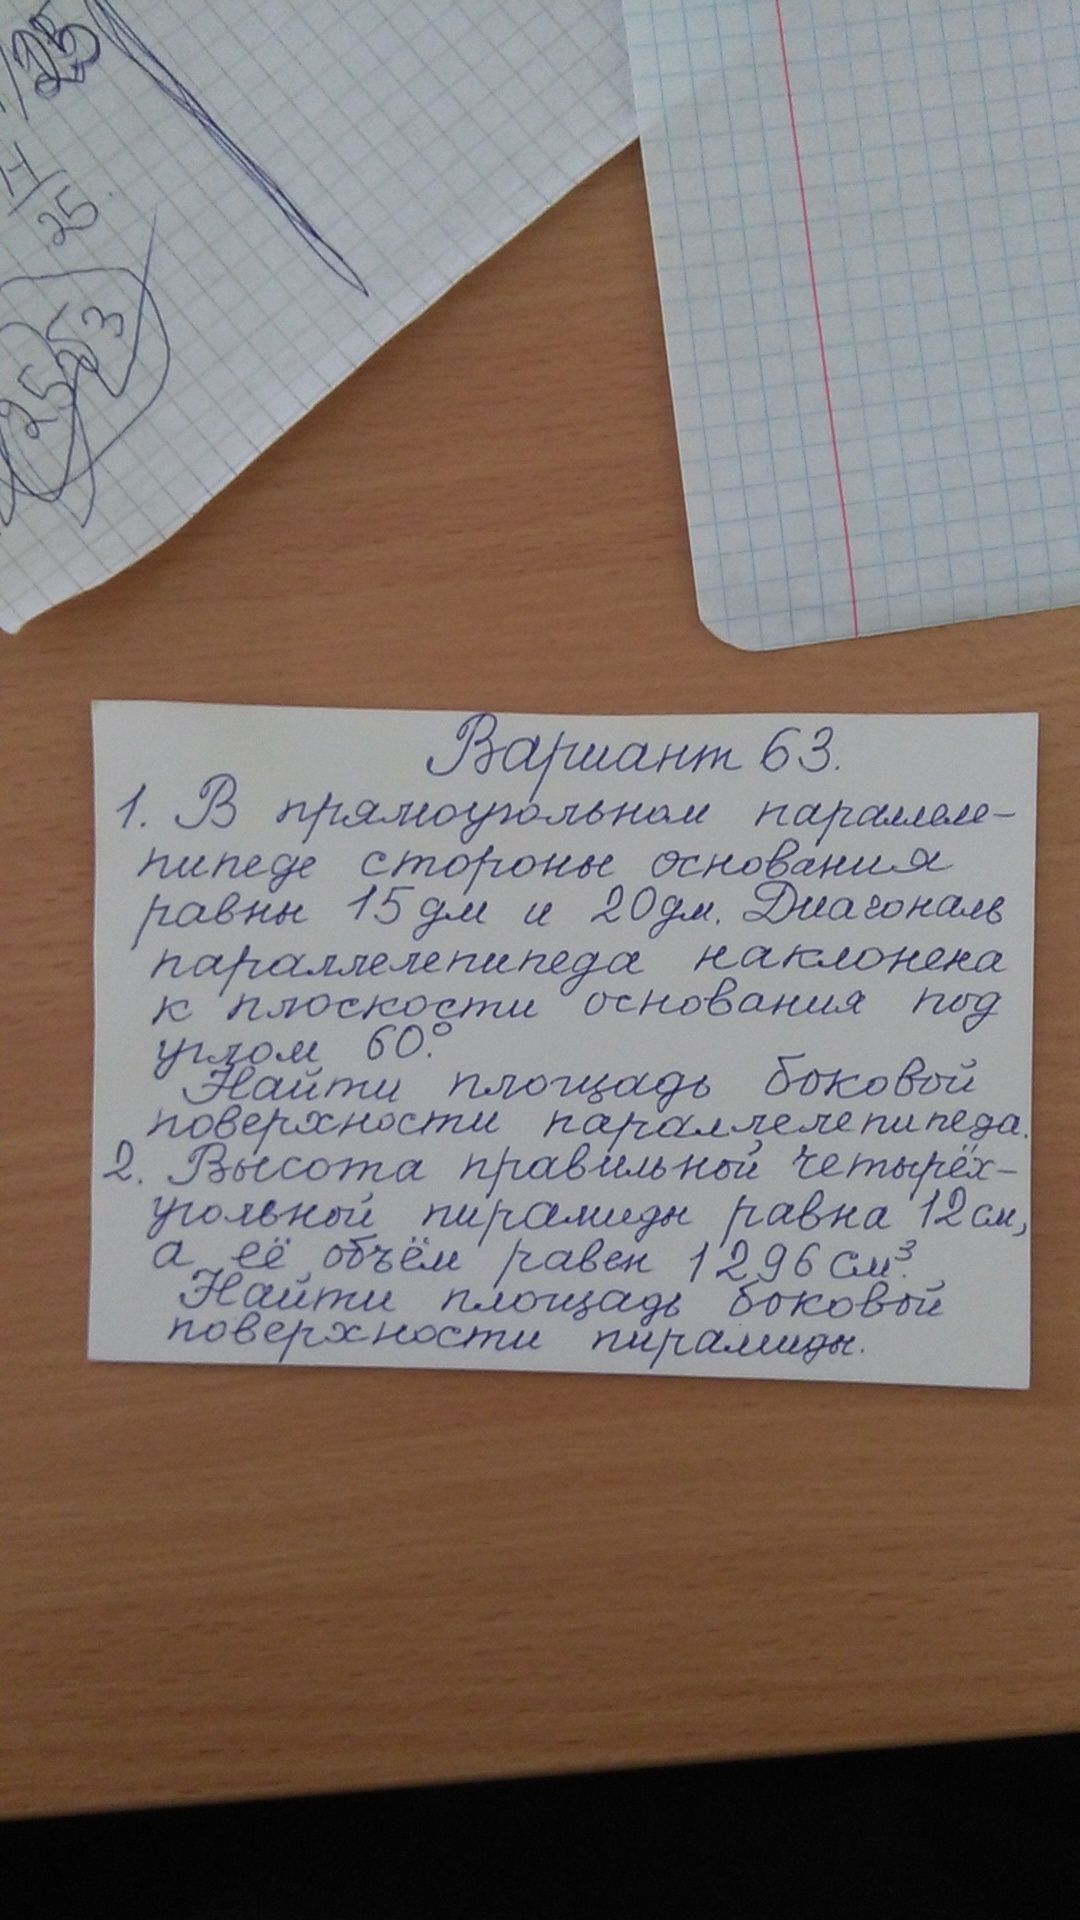 25
25
Вариант 63.
1. В прямоугольном параллеле-
пипеде стороны основания
равны 15 дм и 20 дм. Диагональ
параллелепипеда наклонена
к плоскости основания под
углом 60°.
Найти площадь боковой
поверхности параллелепипеда.
2. Высота правильной четырёх-
угольной пирамиды равна 12 см,
а её объём равен 1296 см³.
Найти площадь боковой
поверхности пирамиды.